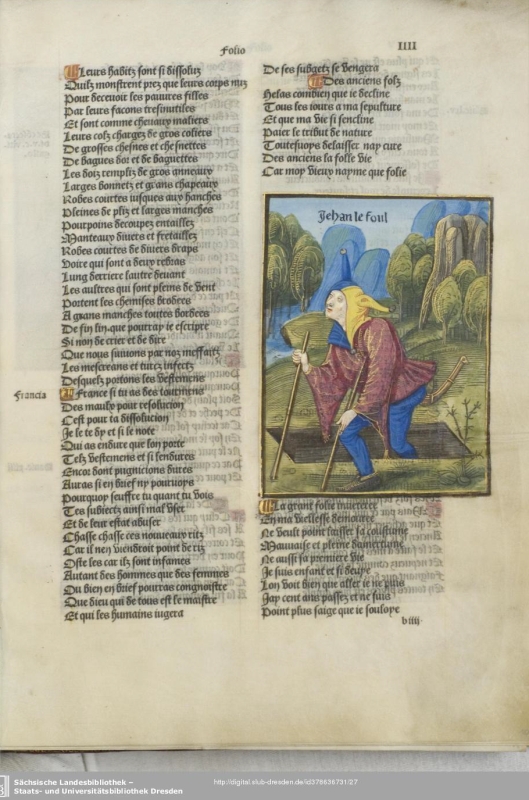 Folio
IIII
Leurs habitz sont si dissoluz
Quilz monstrent prez que leurs corps nuz
Pour decevoir les pauures filles
Par leurs facons tresinutiles
Et sont comme cheuaux maliers
Leurs colz chargez de gros coliers
De grosses chesnes et chesnettes
De bagues dor et de baguettes
Les doiz templiz de gros anneaux
Larges bonnetz et grans chapeaux
Robes courtes iusques aux hanches
Pleines de pliz et larges manches
Pourpoins decoupez entaillez
Manteaux diuers et fretaillez
Robes courtes de diuers draps
Voire qui sont a deux rebras
Lung derriere lautre deuant
Les aultres qui sont pleins de vent
Portent les chemises brodees
A grans manches toutes bordees
De fin lin que pourray ie escripre
Si non de crier et de dire
Que nous suiuons par noz meffaitz
Les mescreans et turcz infectz
Desquelz portons les vestemens
Francia
France si tu as des tourmens
Des maulx pour resolucion
Cest pour ta dissolucion
Je le te dy et si le note
Qui as endure que lon porte
Telz vestemens et si lendures
Encor dont pugnicions dures
Auras si en brief ny pouruoys
Pourquoy seuffre tu quant tu vois
Tes subiectz ainsi mal vser
Et de leur estat abuser
Chasse chasse ces nouueaux ritz
Car il nen viendroit point de riz
Oste les car ilz sont infames
Autant des hommes que des femmes
Ou bien en brief pourras congnoistre
Que dieu qui de tous est le maistre
Et qui les humains iugera
De ses subgetz se vengera
Des anciens folz
Helas combien que ie decline
Tous les iours a ma sepulture
Et que ma vie si sencline
Paier le tribut de nature
Toutesuoys delaisser nay cure
Des anciens la folle vie
Car moy vieux nayme que folie
Jehan le foul
La grant folie inueteree
En ma viellesse demouree
Ne veult point laisser sa coustume
Mauuaise et pleine damertume
Ne aussi sa premiere vie
Je suis enfant et si desvie
Lon voit bien que aller ie ne puis
Jay cent ans passez et ne suis
Point plus saige que ie souloye
b iiii
Sächsische Landesbibliothek –
Staats- und Universitätsbibliothek Dresden
http://digital.slub-dresden.de/id378636731/27